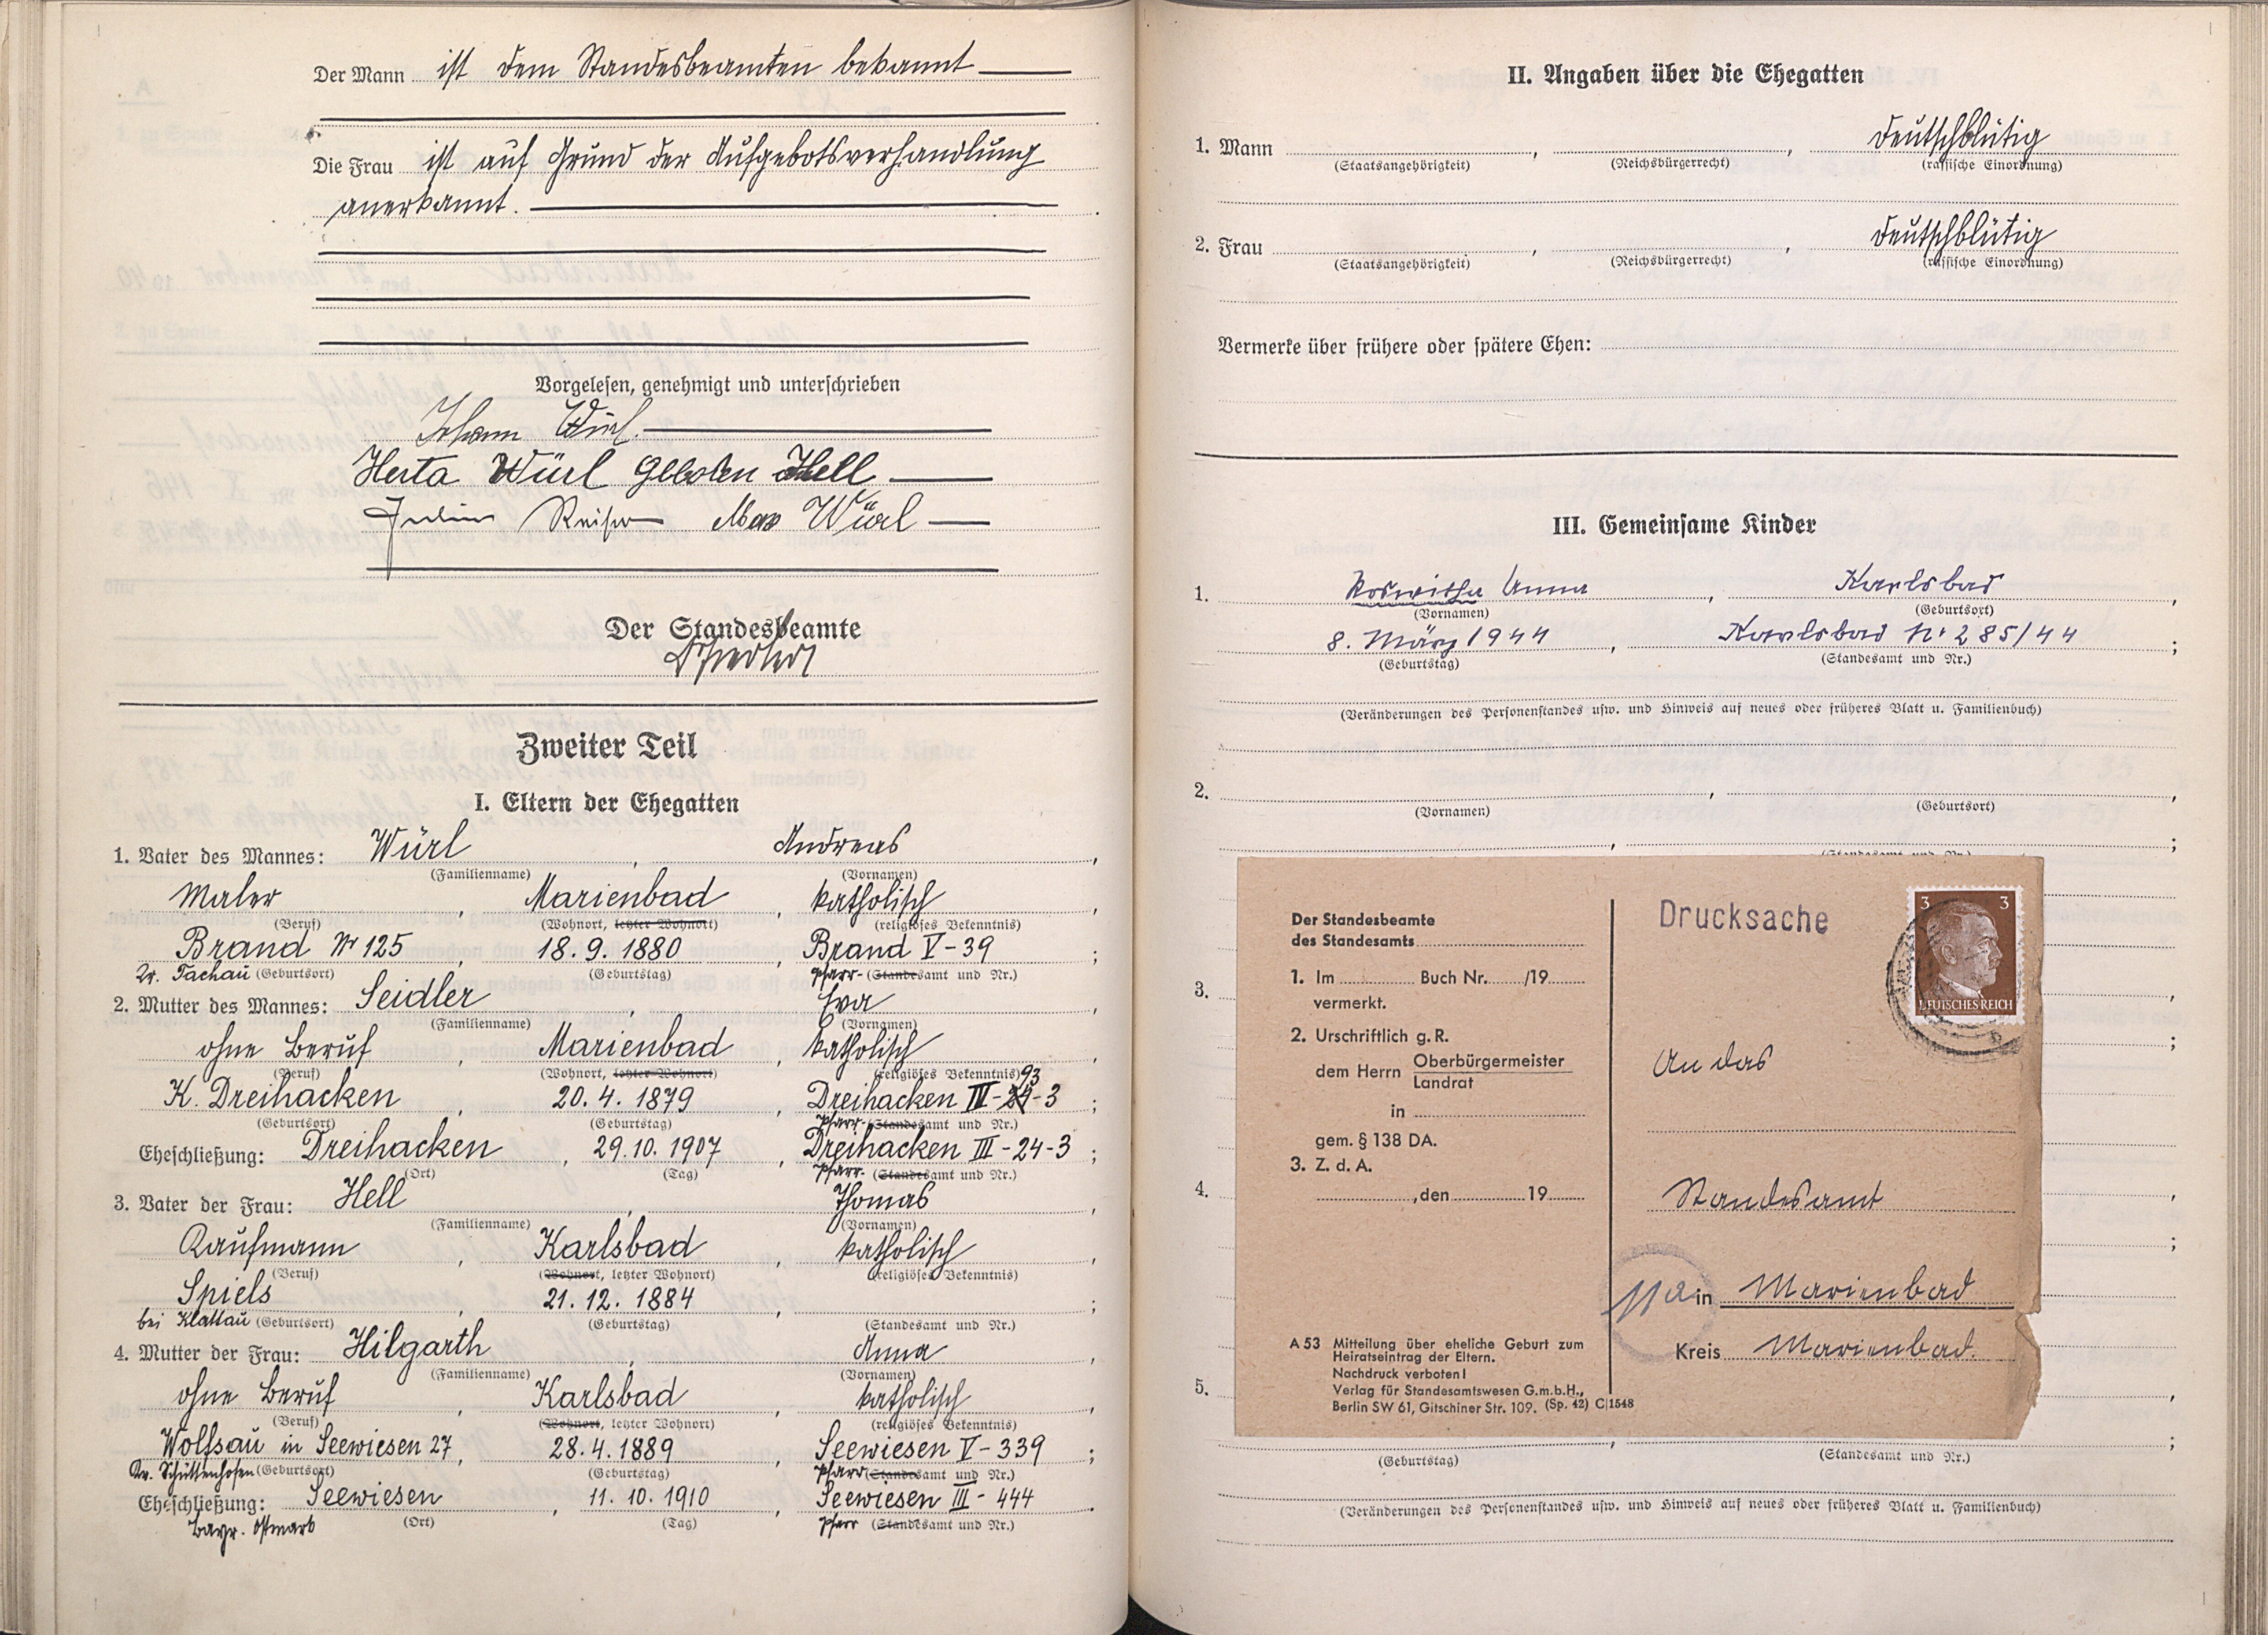 Der Mann ist dem Standesbeamten bekannt
Die Frau ist auf Grund der Aufgebotsverhandlung
anerkannt.
Vorgelesen, genehmigt und unterschrieben
Johann Würl.
Herta Würl geboren Hell
Max Würl
Der Standesbeamte
Zweiter Teil
I. Eltern der Ehegatten
1. Vater des Mannes: Würl, Andreas,
(Familienname) (Vornamen)
Maler, Marienbad, katholisch,
(Beruf) (Wohnort, letzter Wohnort) (religiöses Bekenntnis)
Brand Nr 125, 18.9.1880, Brand V-39;
Kr. Tachau (Geburtsort) (Geburtstag) Pfarr- (Standesamt und Nr.)
2. Mutter des Mannes: Seidler, Eva,
(Familienname) (Vornamen)
ohne Beruf, Marienbad, katholisch,
(Beruf) (Wohnort, letzter Wohnort) (religiöses Bekenntnis) 93
K. Dreihacken, 20.4.1879, Dreihacken IV-24-3;
(Geburtsort) (Geburtstag) Pfarr- (Standesamt und Nr.)
Eheschließung: Dreihacken, 29.10.1907, Dreihacken III-24-3;
(Ort) (Tag) Pfarr- (Standesamt und Nr.)
3. Vater der Frau: Hell, Thomas,
(Familienname) (Vornamen)
Kaufmann, Karlsbad, katholisch,
(Beruf) (Wohnort, letzter Wohnort) (religiöses Bekenntnis)
Spiels, 21.12.1884, ;
bei Klattau (Geburtsort) (Geburtstag) (Standesamt und Nr.)
4. Mutter der Frau: Hilgarth, Anna,
(Familienname) (Vornamen)
ohne Beruf, Karlsbad, katholisch,
(Beruf) (Wohnort, letzter Wohnort) (religiöses Bekenntnis)
Wolfsau in Seewiesen 27, 28.4.1889, Seewiesen V-339;
Kr. Schüttenhofen (Geburtsort) (Geburtstag) Pfarr (Standesamt und Nr.)
Eheschließung: Seewiesen, 11.10.1910, Seewiesen III-444.
bayr. Ostmark (Ort) (Tag) Pfarr (Standesamt und Nr.)
II. Angaben über die Ehegatten
1. Mann , , deutschblütig
(Staatsangehörigkeit) (Reichsbürgerrecht) (rassische Einordnung)
2. Frau , , deutschblütig
(Staatsangehörigkeit) (Reichsbürgerrecht) (rassische Einordnung)
Vermerke über frühere oder spätere Ehen:
III. Gemeinsame Kinder
1. Roswitha Anna, Karlsbad,
(Vornamen) (Geburtsort)
8. März 1944, Karlsbad Nr 285/44;
(Geburtstag) (Standesamt und Nr.)
(Veränderungen des Personenstandes usw. und Hinweis auf neues oder früheres Blatt u. Familienbuch)
2. , ,
(Vornamen) (Geburtsort)
, ;
(Standesamt und Nr.)
3.
4.
5.
Der Standesbeamte
des Standesamts
1. Im Buch Nr. /19
vermerkt.
2. Urschriftlich g. R.
dem Herrn Oberbürgermeister
Landrat
in
gem. § 138 DA.
3. Z. d. A.
, den 19
A 53 Mitteilung über eheliche Geburt zum
Heiratseintrag der Eltern.
Nachdruck verboten!
Verlag für Standesamtswesen G.m.b.H.,
Berlin SW 61, Gitschiner Str. 109. (Sp. 42) C|1548
Drucksache
3 3
DEUTSCHES REICH
An das
Standesamt
11a in Marienbad
Kreis Marienbad.
, ;
(Geburtstag) (Standesamt und Nr.)
(Veränderungen des Personenstandes usw. und Hinweis auf neues oder früheres Blatt u. Familienbuch)